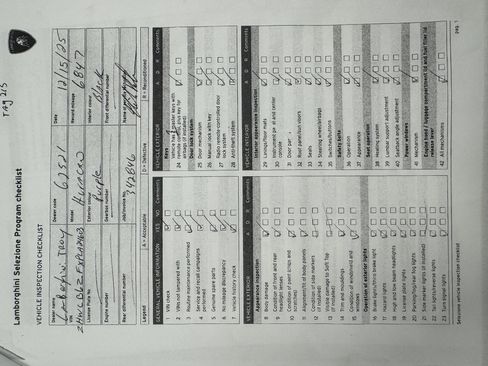 Tag 215
Lamborghini Selezione Program checklist
VEHICLE INSPECTION CHECKLIST
Dealer name
Lamborghini TROY
Dealer code
62521
Date
12/15/25
VIN
Model
HURACAN
Record mileage
6847
License Plate No
Exterior colour
Purple
Interior colour
Black
Engine number
Gearbox number
Front differential number
Rear differential number
Job/Invoice No
342846
Legend
A = Acceptable
D = Defective
R = Reconditioned
GENERAL VEHICLE INFORMATION YES NO Comments
1 VIN check
2 VINs not tampered with
3 Routine maintenance performed
4 Service and recall campaigns performed
5 Genuine spare parts
6 No mileage discrepancy
7 Vehicle history check
VEHICLE EXTERIOR A D R Comments
Appearance inspection
8 Body damage
9 Condition of front and rear headlight lenses
10 Condition of paint (chips and scratches)
11 Alignment/fit of body panels
12 Condition of side markers (if installed)
13 Visible damage to Soft Top (if installed)
14 Trim and mouldings
15 Condition of windshield and windows
Operation of exterior lights
16 Brake lights/third brake light
17 Hazard lights
18 High and low beam headlights
19 License plate lights
20 Parking/fog/rear fog lights
21 Side marker lights (if installed)
22 Tail lights/reverse lights
23 Turn signal lights
VEHICLE EXTERIOR A D R Comments
Keys
24 Vehicle has 2 master keys with remote control, plus key for
Door lock system
25 Door mechanism
26 Manual lock with key
27 Radio remote-controlled door lock system
28 Anti-theft system
VEHICLE INTERIOR A D R Comments
Interior appearance inspection
29 Linings/floor mats
30 Instrument panel and center console
31 Door panels
32 Roof panels/sun visors
33 Seats
34 Steering wheel/airbags
35 Switches/buttons
Safety belts
36 Operation
37 Appearance
Seat operation
38 Heating system
39 Lumbar support adjustment
40 Seatback angle adjustment
Power windows
41 Mechanism
Engine/luggage compartment lid and fuel filler lid release lever
42 All mechanisms
Selezione vehicle inspection checklist
pag. 1